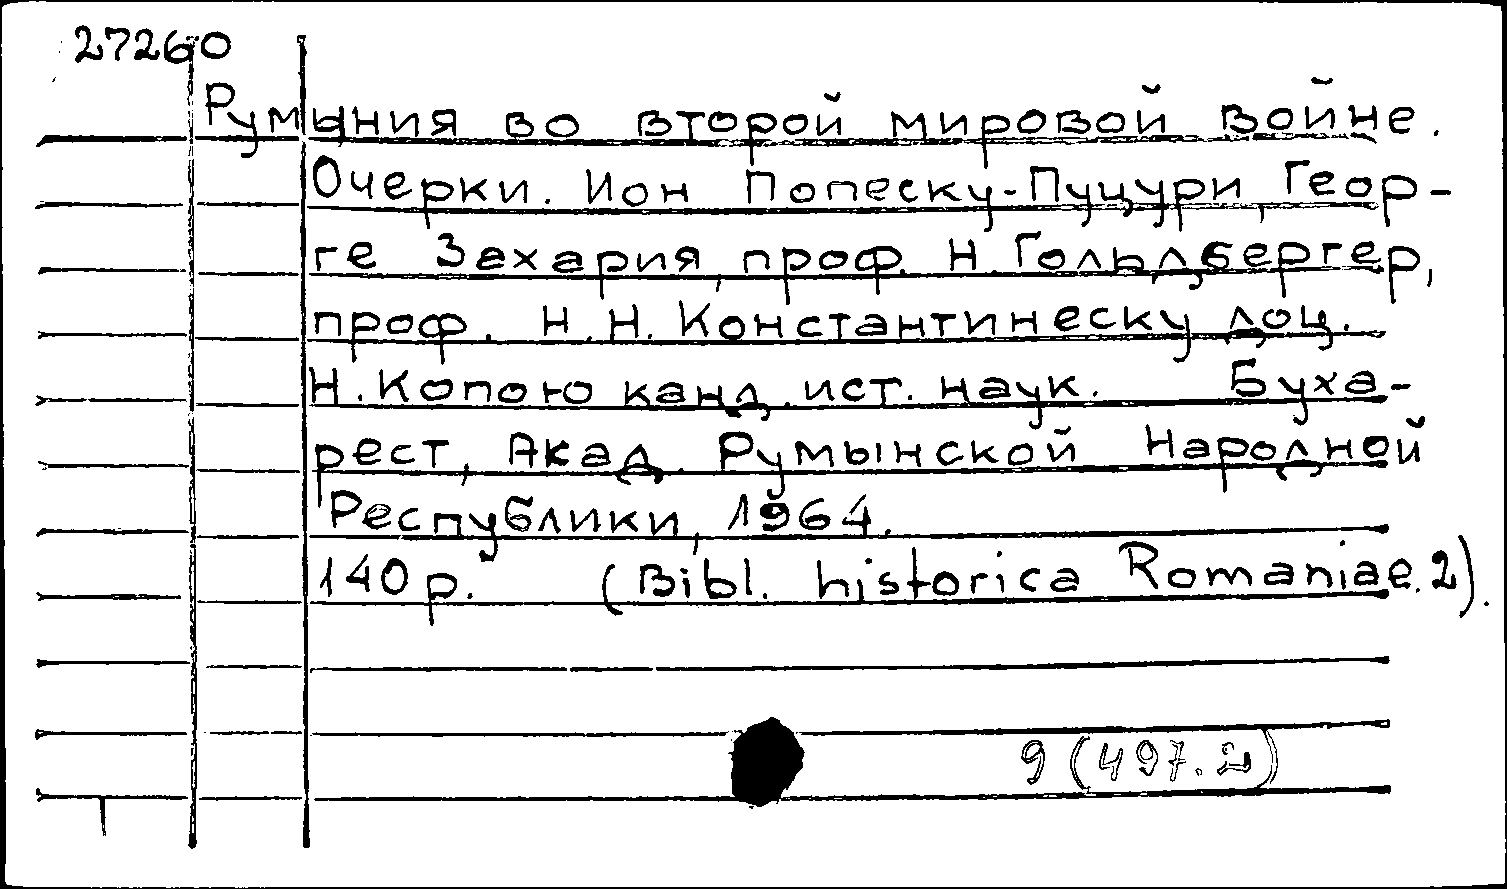 27260
Румыния во второй мировой войне.
Очерки. Ион Попеску-Пуцури, Геор-
ге Захария, проф. Н. Гольдбергер,
проф. Н. Н. Константинеску доц.
Н. Копою канд. ист. наук. Буха-
рест, Акад. Румынской Народной
Республики, 1964.
140 p. (Bibl. historica Romaniae. 2).
9 (497.2)